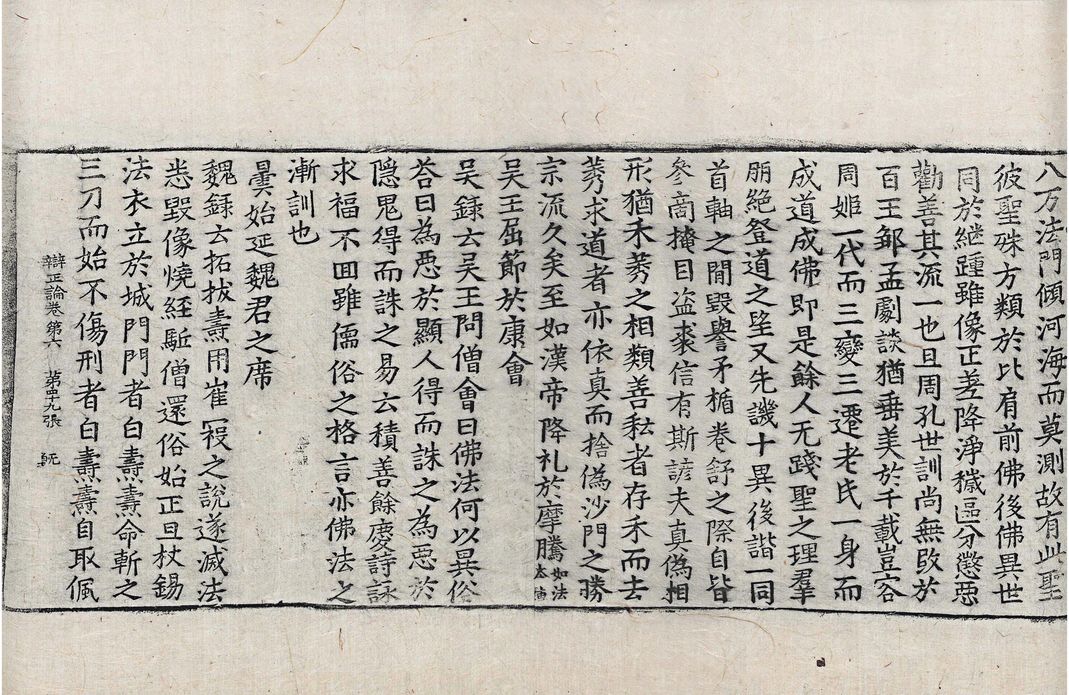 八万法門傾河海而莫測故有此聖
彼聖殊方類於比肩前佛後佛異世
同於継踵雖像正差降淨穢區分懲惡
勸善其流一也且周孔世訓尚無㪅於
百王鄒孟劇談猶垂美於千載豈容
周姬一代而三變三遷老氏一身而
成道成佛即是餘人无踐聖之理羣
朋絶登道之望又先譏十異後諧一同
首軸之閒毀譽矛楯卷舒之際自皆
參商掩目盗裘信有斯諺夫真偽相
形猶禾莠之相類善耘者存禾而去
莠求道者亦依真而捨偽沙門之勝
宗流久矣至如漢帝降礼於摩騰如法本傳
吳王屈節於康會
吳録云吳王問僧會曰佛法何以異俗
荅曰為惡於顯人得而誅之為惡於
隠鬼得而誅之易云積善餘慶詩詠
求福不回雖儒俗之格言亦佛法之
漸訓也
曇始延魏君之席
魏録云拓拔燾用崔㓂之說遂滅法
悉毀像燒経駈僧還俗始正旦杖錫
法衣立於城門門者白燾燾命斬之
三刀而始不傷刑者白燾燾自取佩
辯正論卷第六 第四九張